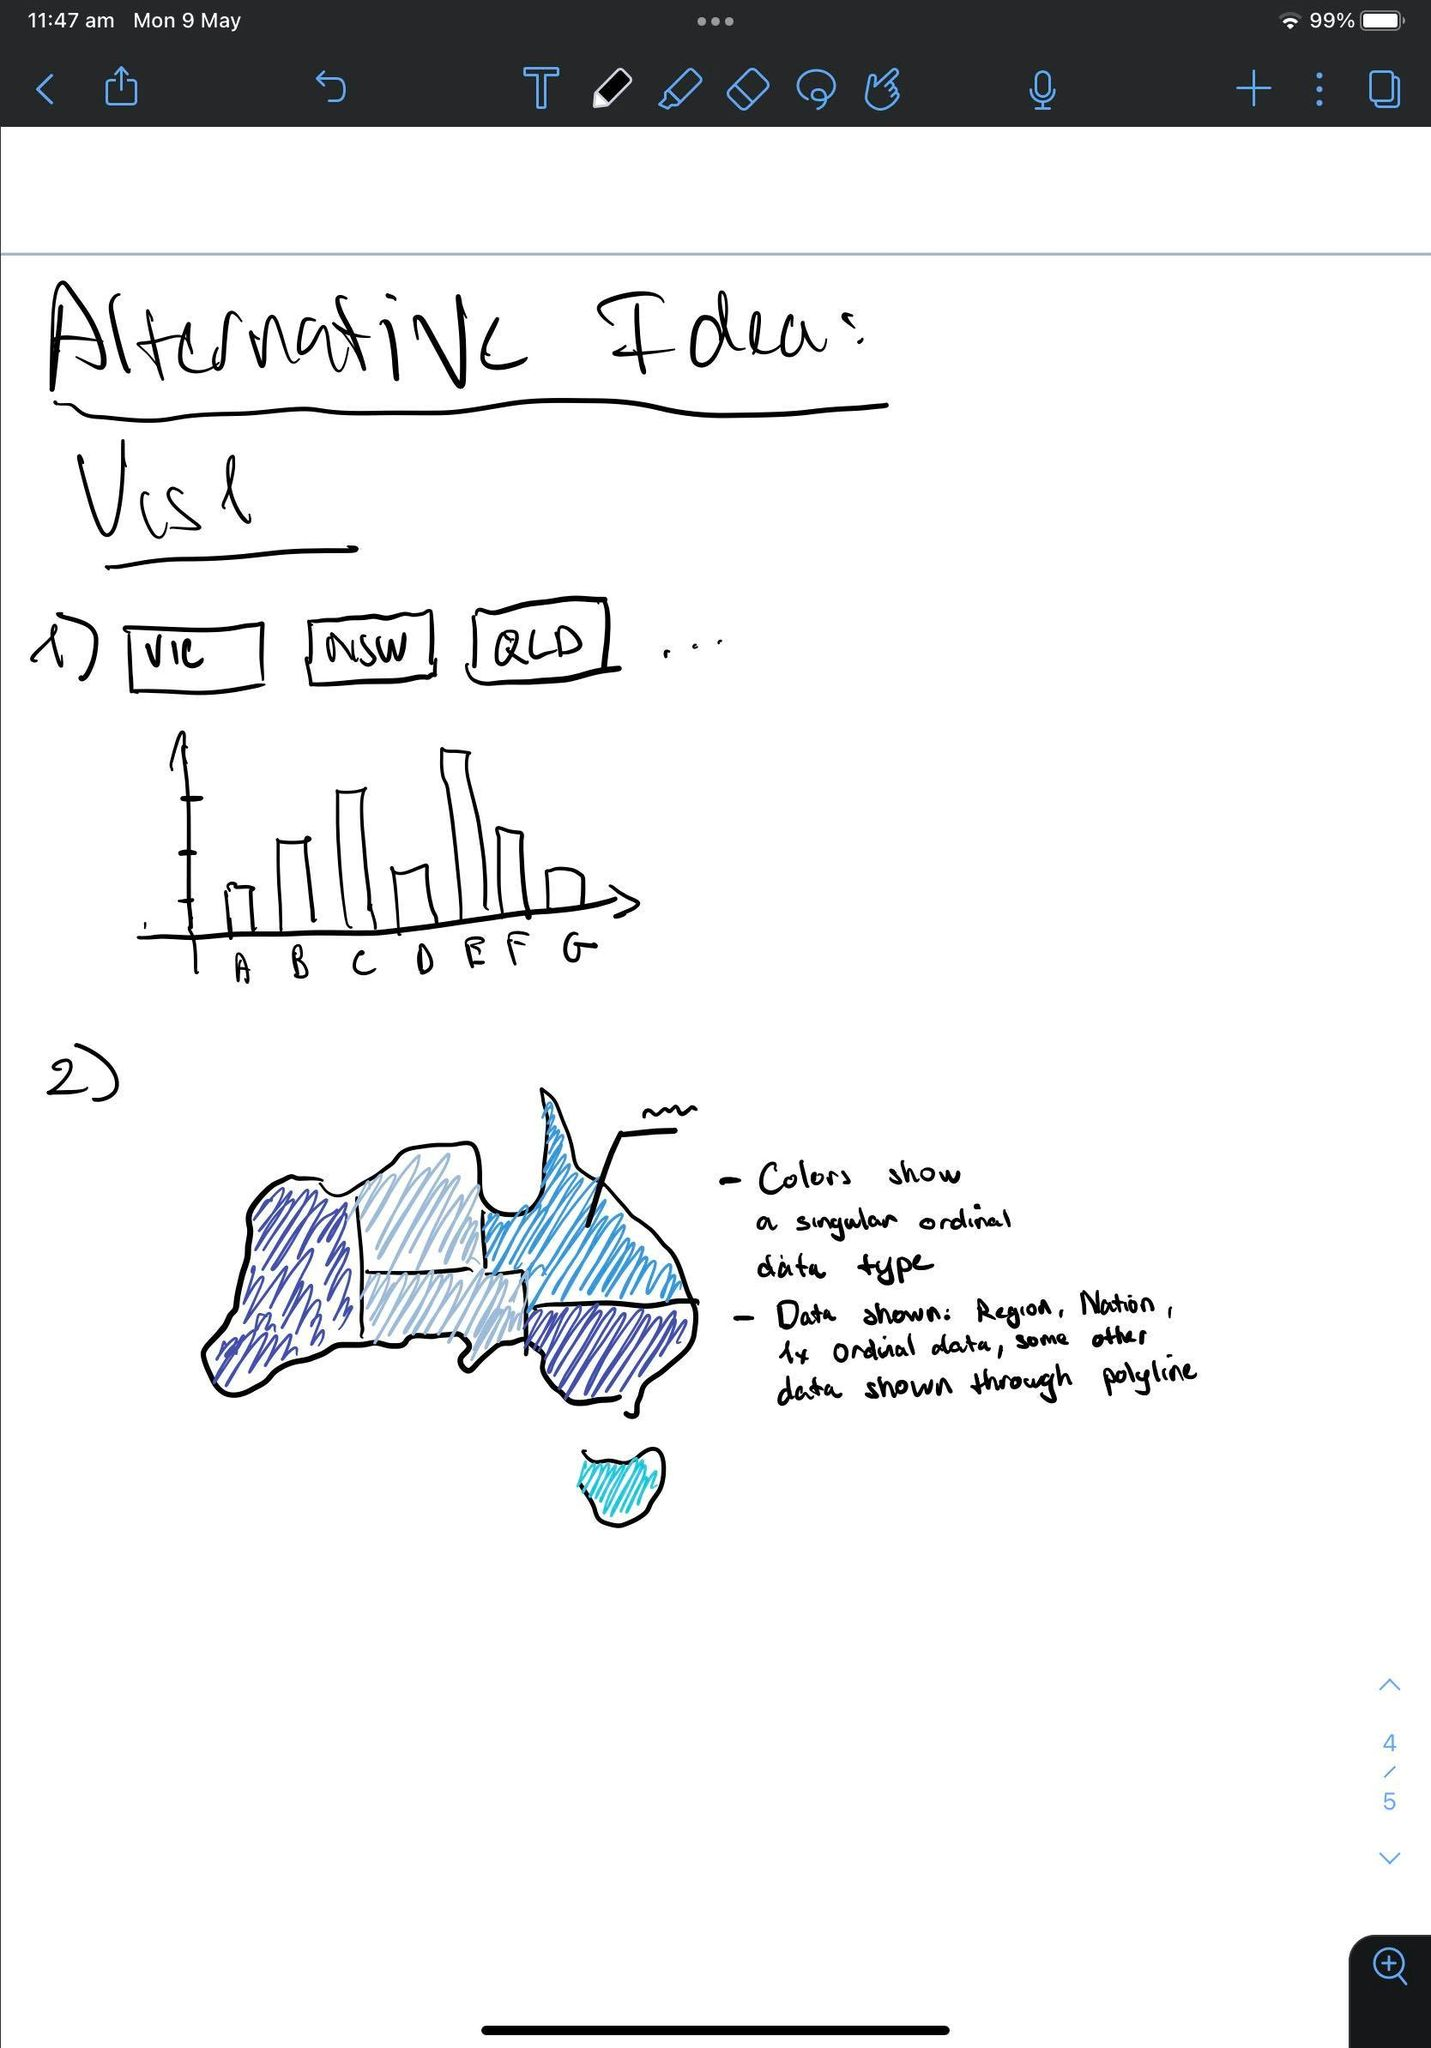 11:47 am Mon 9 May
99%
T
Alternative Idea:
Vis 1
1) VIC NSW QLD ...
A B C D E F G
2)
- Colors show
a singular ordinal
data type
- Data shown: Region, Nation,
1x ordinal data, some other
data shown through polyline
4
/
5